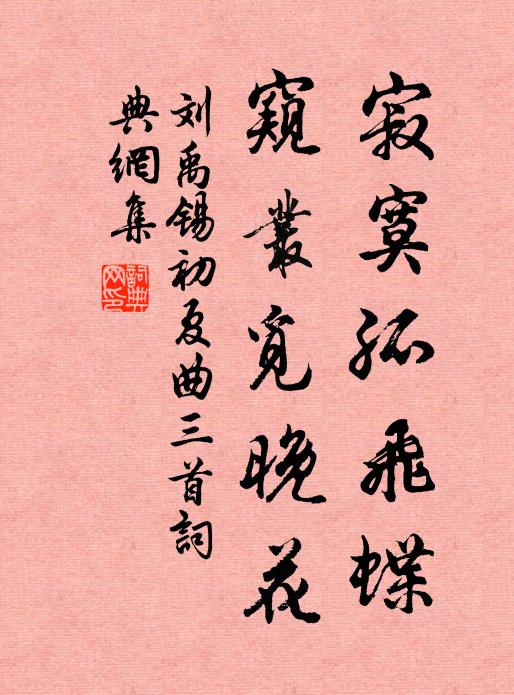 寂寞孤飛蝶
窺叢覓晚花
刘禹锡初夏曲三首詞
典網集
詞典網印